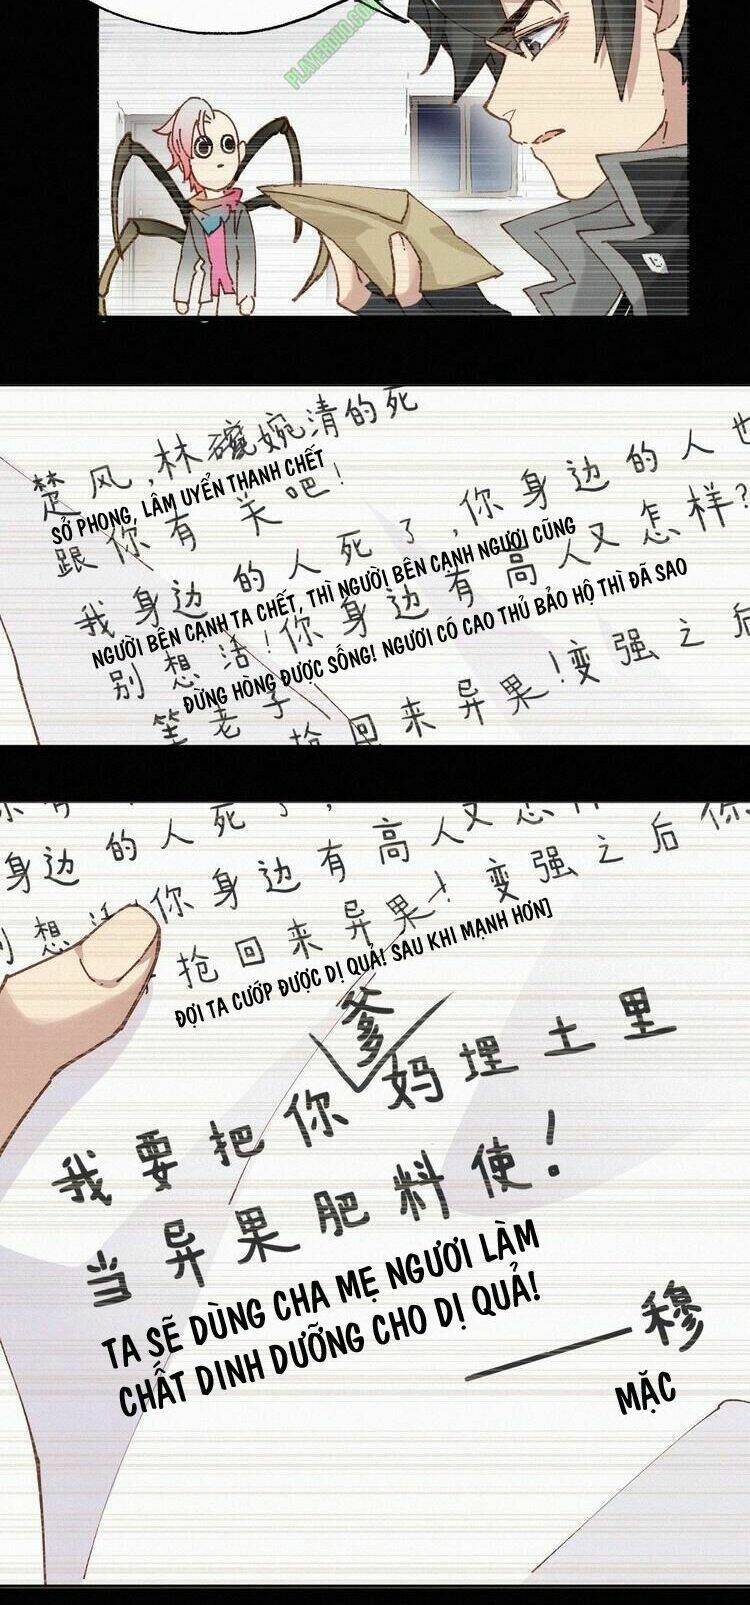 PLAYERDUO.COM
楚风,林 婉清的死
SỞ PHONG, LÂM UYỂN THANH CHẾT
跟你有关吧!
我身边的人死了,你身边的人也
NGƯỜI BÊN CẠNH TA CHẾT, THÌ NGƯỜI BÊN CẠNH NGƯƠI CŨNG
别想活!你身边有高人又怎样?
ĐỪNG HÒNG ĐƯỢC SỐNG! NGƯƠI CÓ CAO THỦ BẢO HỘ THÌ ĐÃ SAO
等老子抢回来异果!变强之后
身边的人死了,
身边有高人又怎样
别想活!你
抢回来异果!变强之后你
ĐỢI TA CƯỚP ĐƯỢC DỊ QUẢ! SAU KHI MẠNH HƠN]
爹
我要把你妈埋土里
当异果肥料使!
TA SẼ DÙNG CHA MẸ NGƯƠI LÀM
CHẤT DINH DƯỠNG CHO DỊ QUẢ!
——穆
MẶC